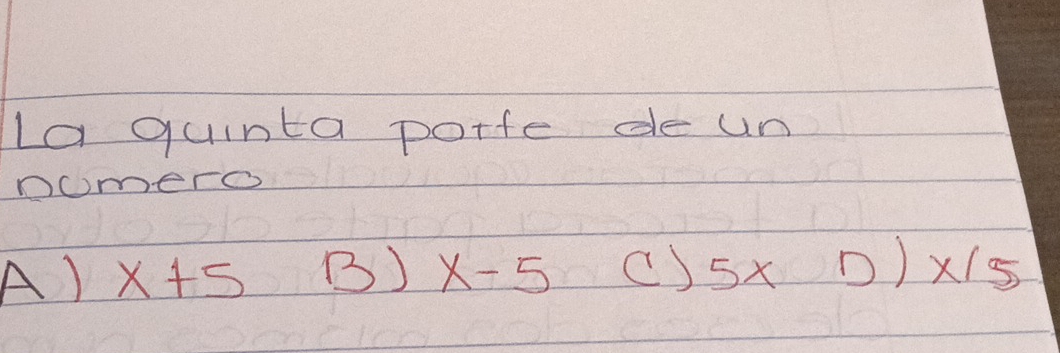 La quinta parte de un
numero
A) x+5 B) x-5 C) 5x D) x/5